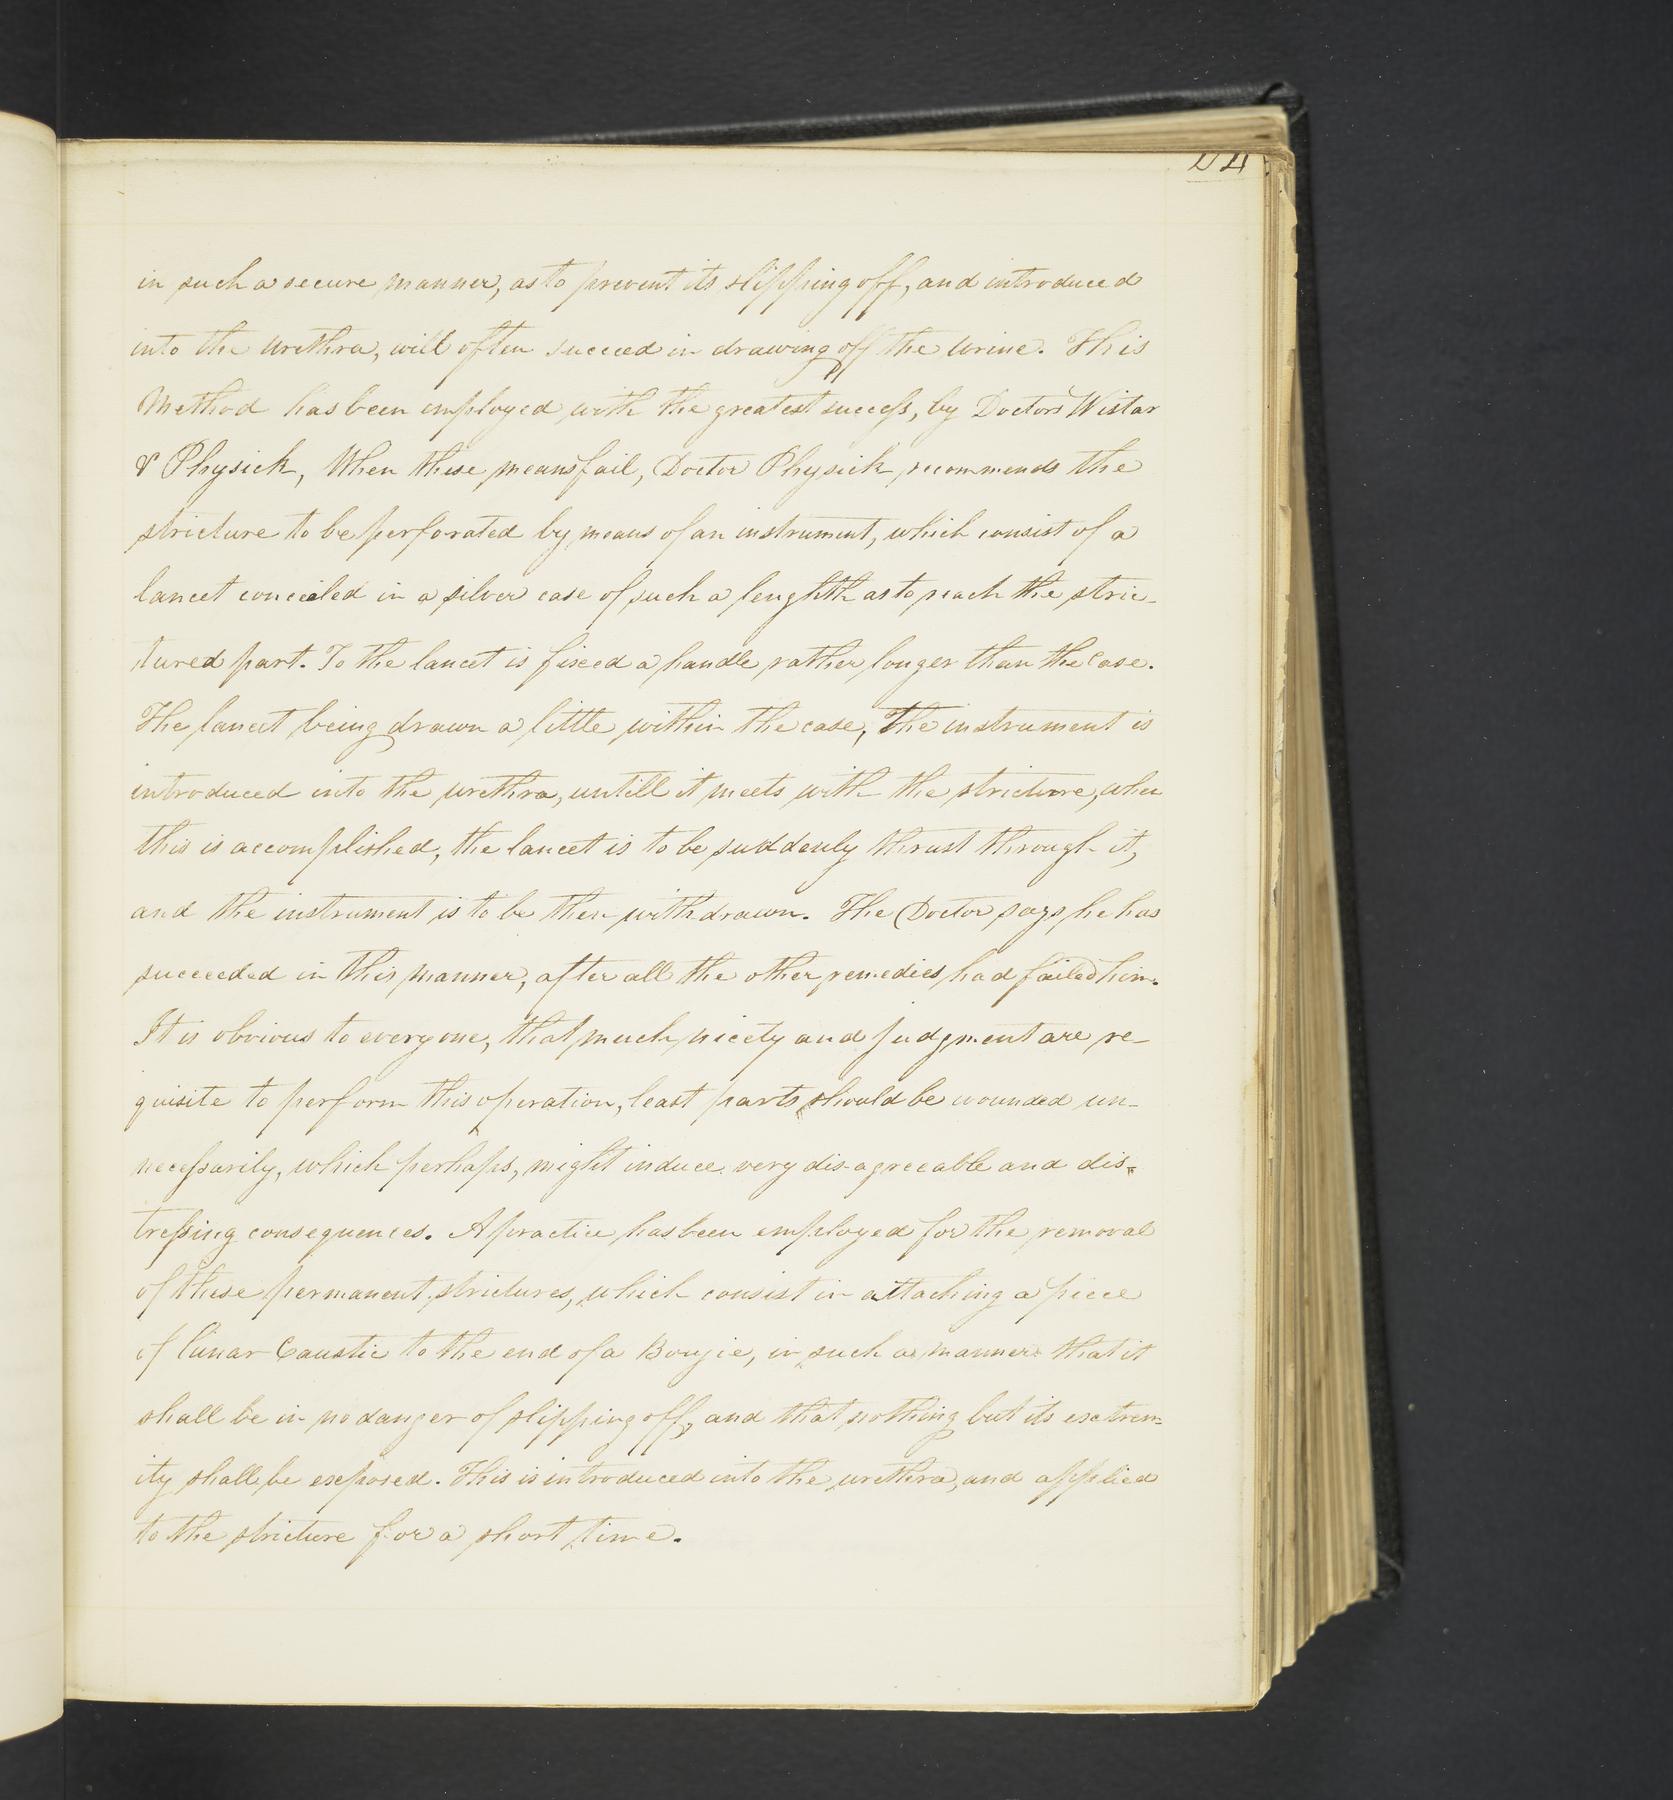 24
in such a secure manner, as to prevent its slipping off, and introduced
into the urethra, will often succeed in drawing off the urine. This
Method has been employed with the greatest success, by Doctors Wistar
& Physick, When these means fail, Doctor Physick recommends the
stricture to be perforated by means of an instrument, which consist of a
lancet conceiled in a silver case of such a lenghth as to reach the stric-
tured part. To the lancet is fixed a handle rather longer than the Case.
The lancet being drawn a little within the case, The instrument is
introduced into the urethra, untill it meets with the stricture, when
this is accomplished, the lancet is to be suddenly thrust through it,
and the instrument is to be then withdrawn. The Doctor says he has
succeeded in this manner, after all the other remedies had failed him.
It is obvious to every one, that much nicety and judgment are re-
quisite to perform this operation, least parts should be wounded un-
necessarily, which perhaps, might induce very dis-agreeable and dis-
tressing consequences. A practice has been employed for the removal
of these permanent strictures, which consist in attaching a piece
of lunar Caustic to the end of a Boujie, in such a manner that it
shall be in no danger of slipping off, and that nothing but its extrem-
ity shall be exposed. This is introduced into the urethra, and applied
to the stricture for a short time.